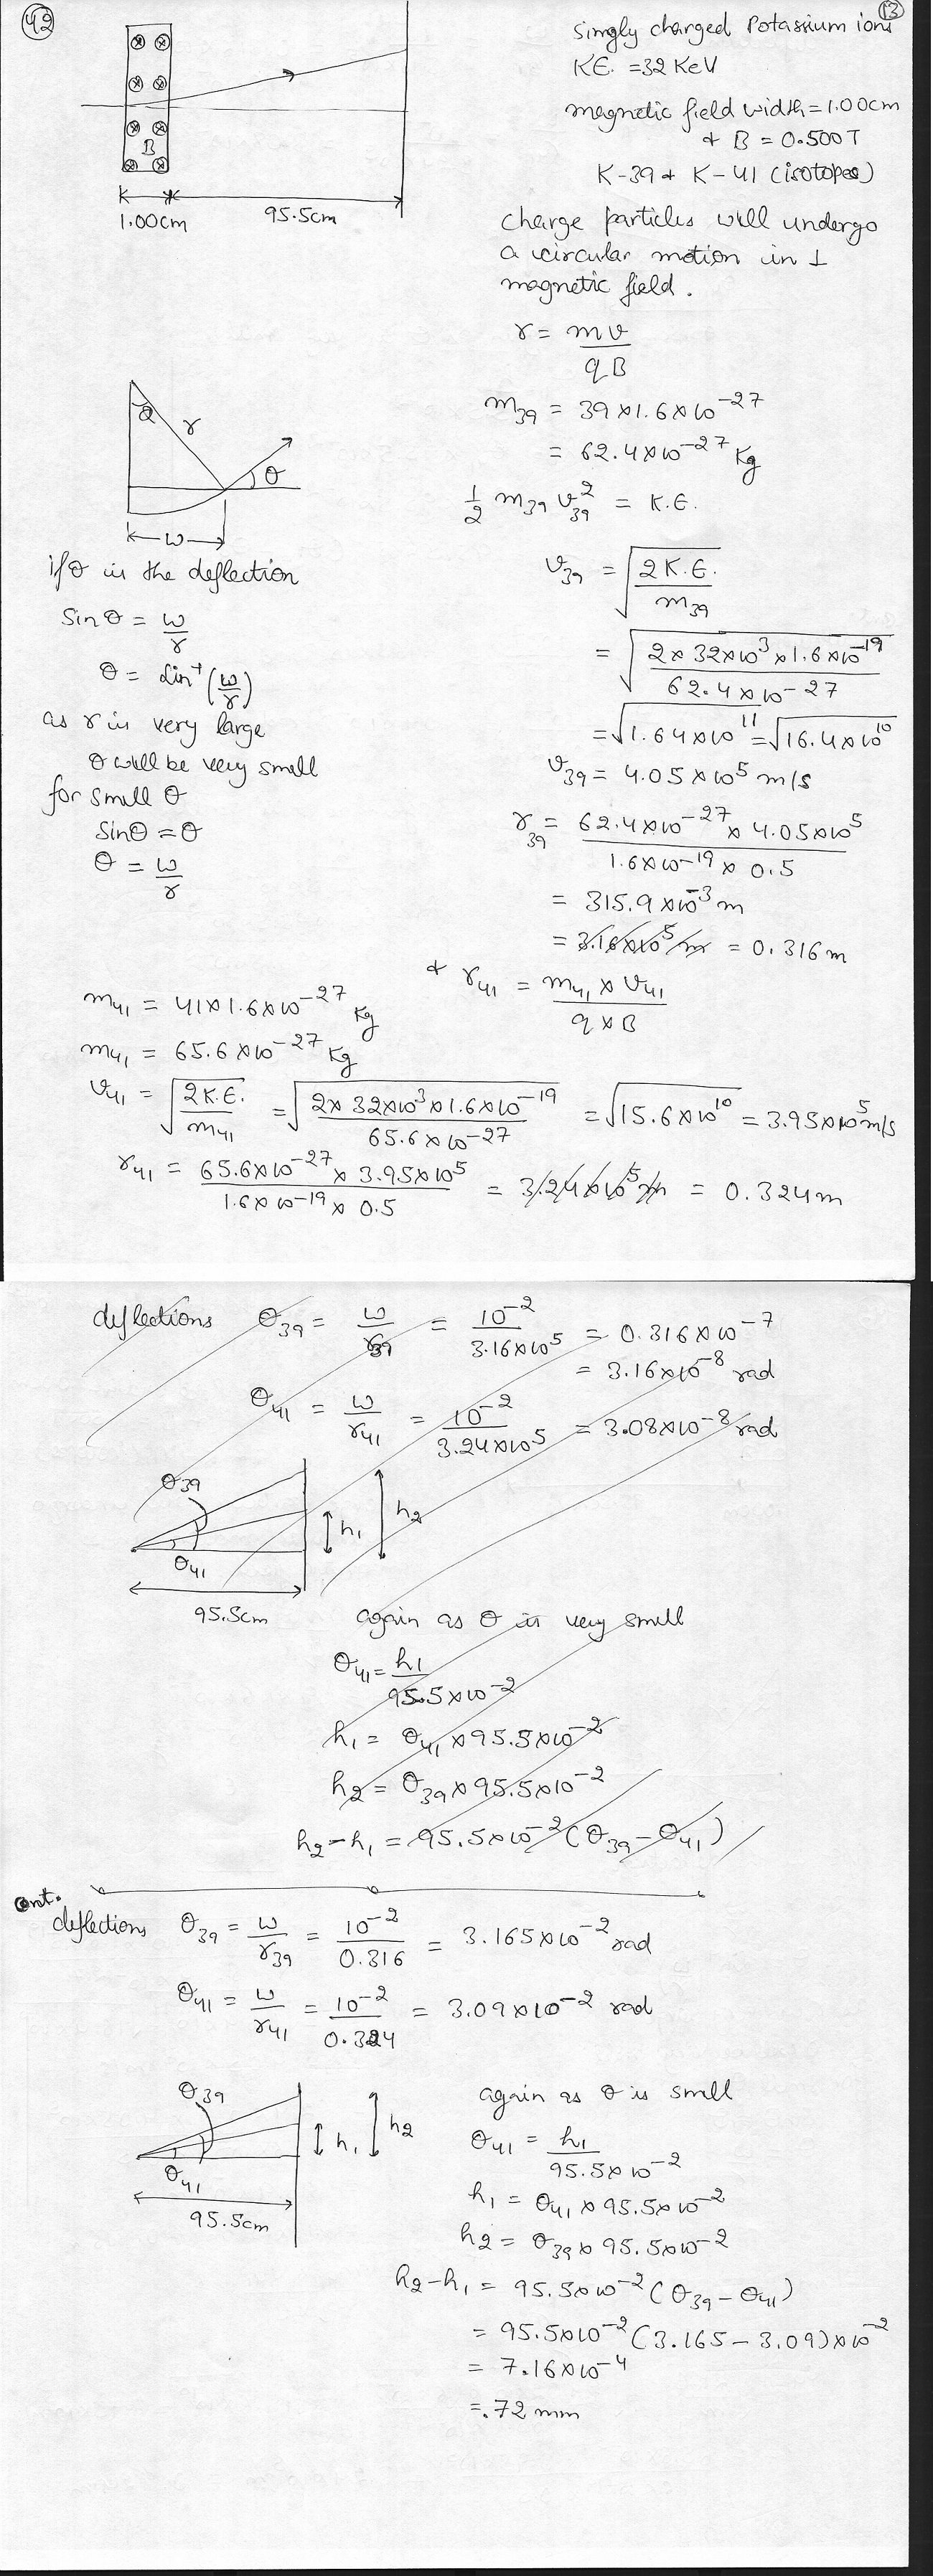 42
13
Simgly charged Potassium ions
KE. = 32 KeV
magnetic field width = 1.00cm
+ B = 0.500T
K-39 + K-41 (isotopes)
B
1.00cm
95.5cm
Charge particles will undergo
a circular motion in ⊥
magnetic field.
r = mv / qB
m39 = 39×1.6×10^-27
= 62.4×10^-27 Kg
1/2 m39 v39^2 = K.E.
v39 = √(2K.E. / m39)
= √(2×32×10^3×1.6×10^-19 / 62.4×10^-27)
= √(1.64×10^11) = √(16.4×10^10)
v39 = 4.05×10^5 m/s
r39 = 62.4×10^-27 × 4.05×10^5 / 1.6×10^-19 × 0.5
= 315.9×10^-3 m
= 3.16×10^5 m = 0.316m
θ
r
θ
w
if θ is the deflection
Sin θ = w/r
θ = Sin^-1 (w/r)
as r is very large
θ will be very small
for small θ
Sinθ = θ
θ = w/r
+ r41 = m41 × v41 / q×B
m41 = 41×1.6×10^-27 Kg
m41 = 65.6×10^-27 Kg
v41 = √(2K.E. / m41) = √(2×32×10^3×1.6×10^-19 / 65.6×10^-27) = √(15.6×10^10) = 3.95×10^5 m/s
r41 = 65.6×10^-27 × 3.95×10^5 / 1.6×10^-19 × 0.5 = 3.24×10^5 m = 0.324m
deflections θ39 = w/r39 = 10^-2 / 3.16×10^5 = 0.316×10^-7
= 3.16×10^-8 rad
θ41 = w/r41 = 10^-2 / 3.24×10^5 = 3.08×10^-8 rad
θ39
θ41
h1
h2
95.5cm
again as θ is very small
θ41 = h1 / 95.5×10^-2
h1 = θ41 × 95.5×10^-2
h2 = θ39 × 95.5×10^-2
h2-h1 = 95.5×10^-2 (θ39 - θ41)
cont.
deflections θ39 = w/r39 = 10^-2 / 0.316 = 3.165×10^-2 rad
θ41 = w/r41 = 10^-2 / 0.324 = 3.09×10^-2 rad
θ39
θ41
h1
h2
95.5cm
again as θ is small
θ41 = h1 / 95.5×10^-2
h1 = θ41 × 95.5×10^-2
h2 = θ39 × 95.5×10^-2
h2-h1 = 95.5×10^-2 (θ39 - θ41)
= 95.5×10^-2 (3.165 - 3.09)×10^-2
= 7.16×10^-4
= .72 mm